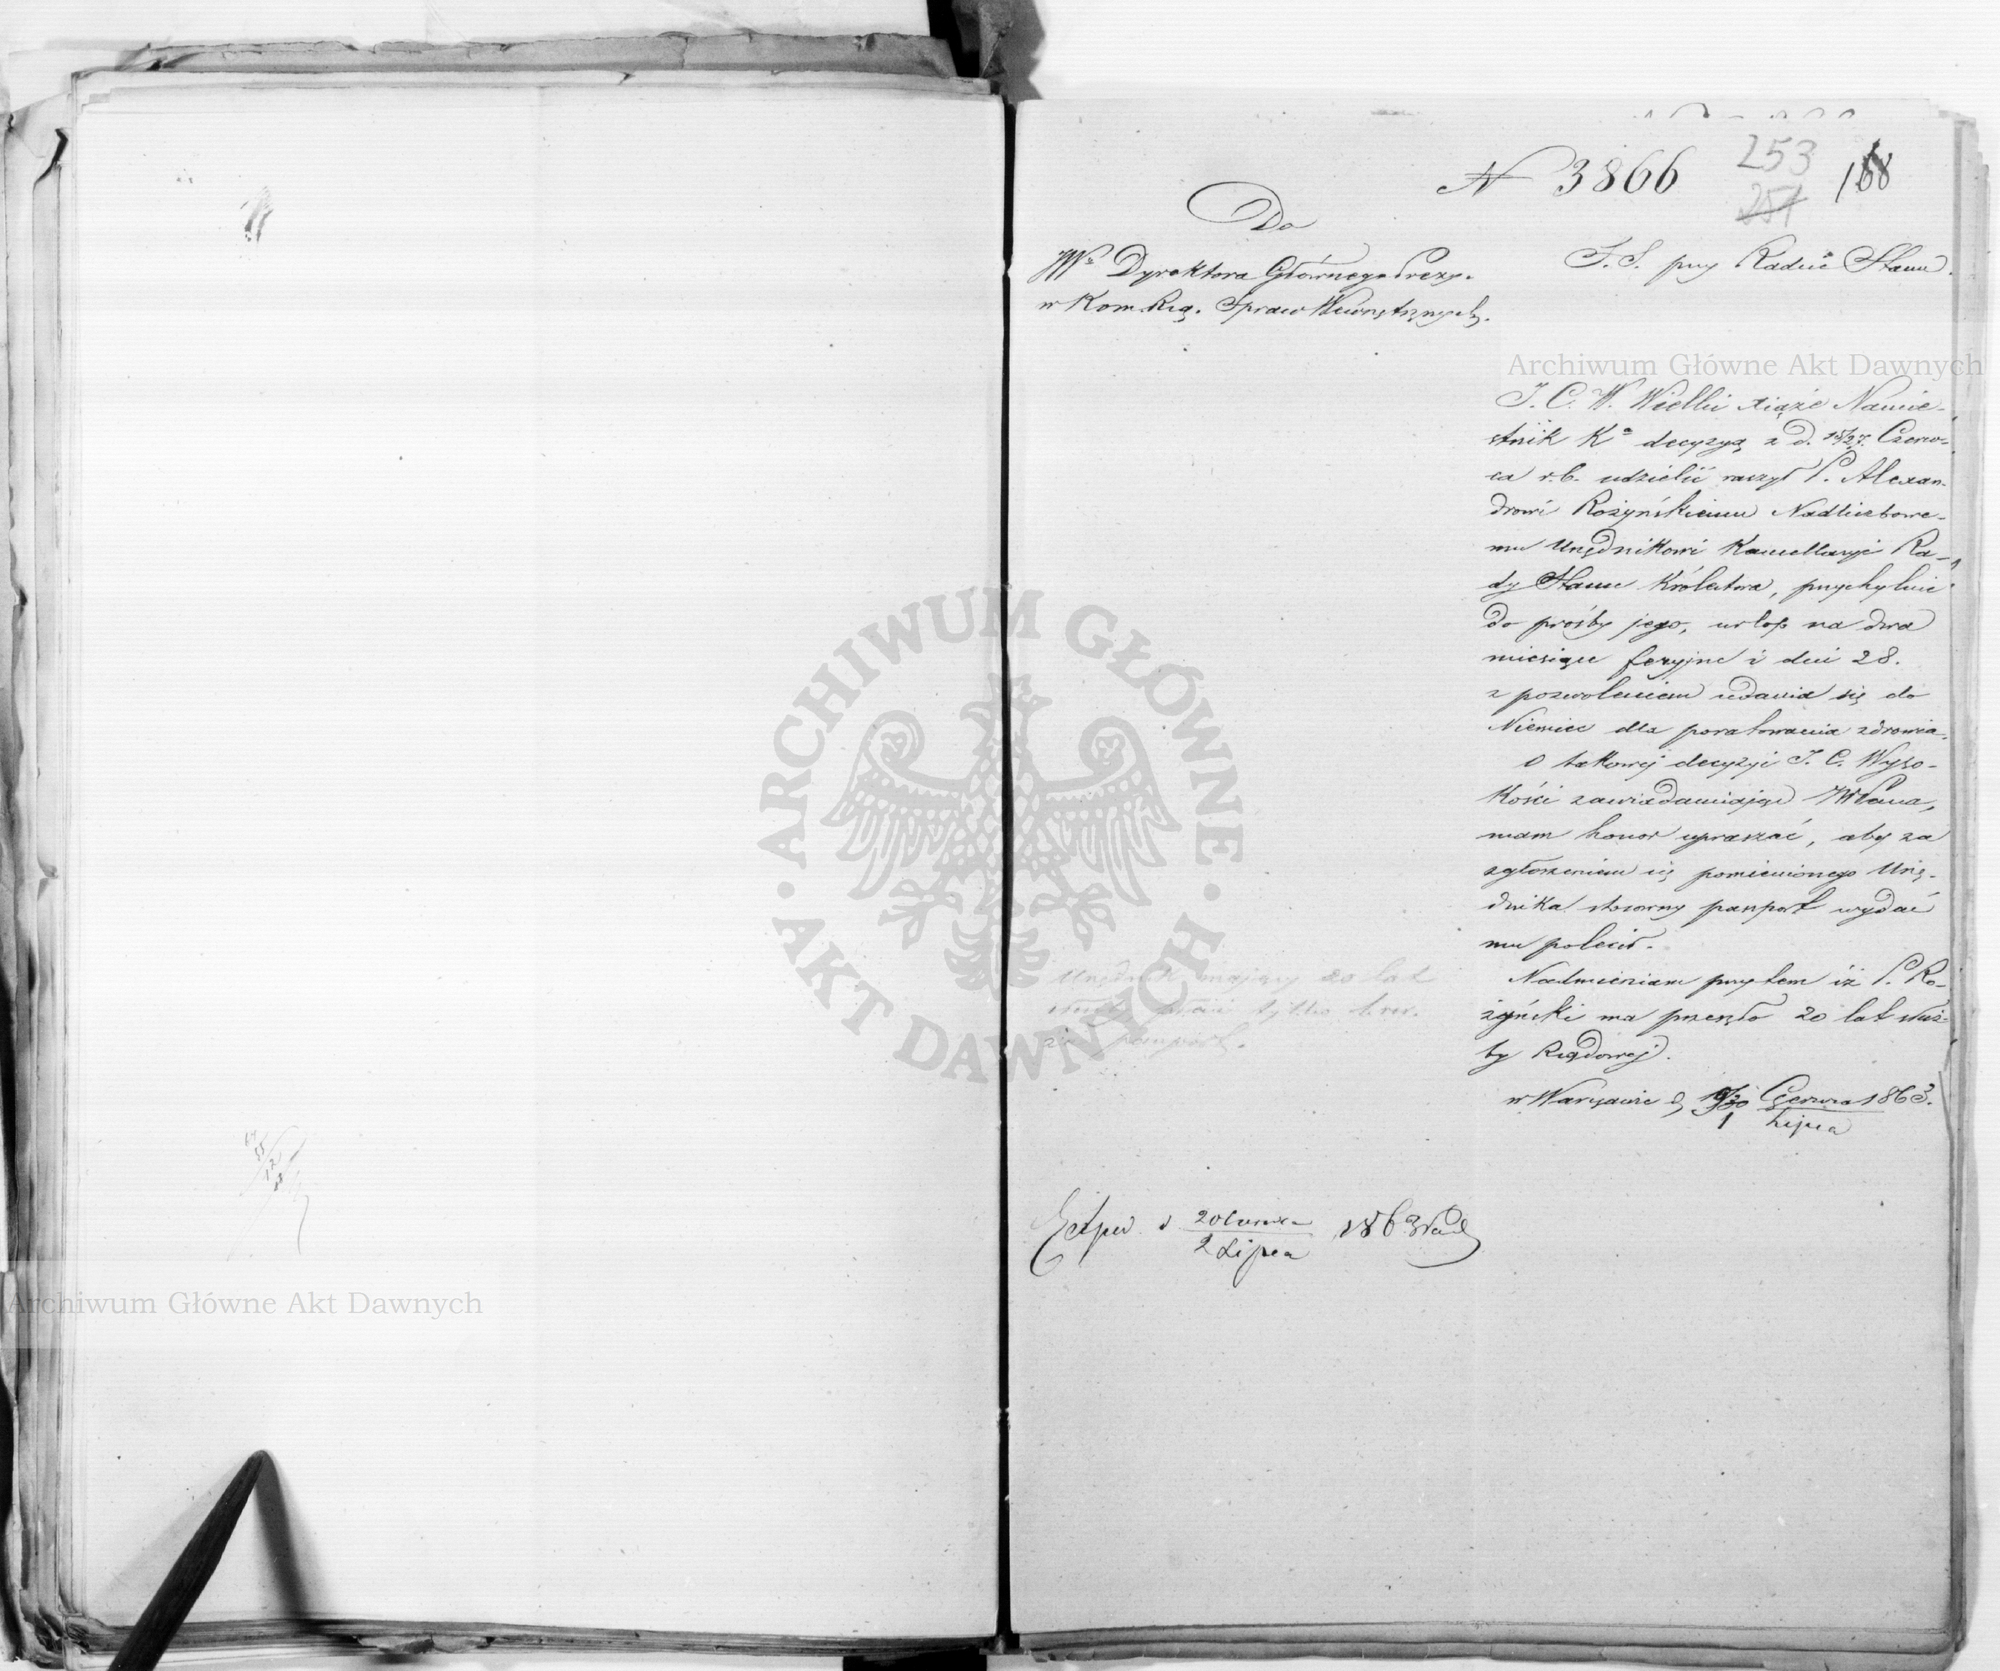 N 3866
253
251
168
Do
JW° Dyrektora Głównego Prezyd.
w Kom. Rzą. Spraw Wewnętrznych.
S. S. przy Radzie Stanu.
Archiwum Główne Akt Dawnych
J. C. W. Wielki Xiąże Namie-
stnik K° decyzyą z d. 15/27. Czerw-
ca r. b. udzielić raczył P. Alexan-
drowi Rożyńskiemu Nadliczbowe-
mu Urzędnikowi Kancellaryi Ra-
dy Stanu Królestwa, przychylnie
do prośby jego, urlop na dwa
miesiące feryjne i dni 28.
z pozwoleniem udania się do
Niemiec dla poratowania zdrowia.
O takowej decyzyi J. C. Wyso-
kości zawiadamiając JWPana,
mam honor upraszać, aby za
zgłoszeniem się pomienionego Urzę-
dnika stosowny paszport wydać
mu polecił.
Nadmieniam przytem iż P. Ro-
żyński ma przeszło 20 lat służ-
by Rządowej.
w Warszawie d 19/1 Czerwca/Lipca 1863.
Urzędnik mający 20 lat
służby płaci tylko
za paszport.
Exped. d 20 Czerwca/2 Lipca 1863
ARCHIWUM GŁÓWNE AKT DAWNYCH
Archiwum Główne Akt Dawnych